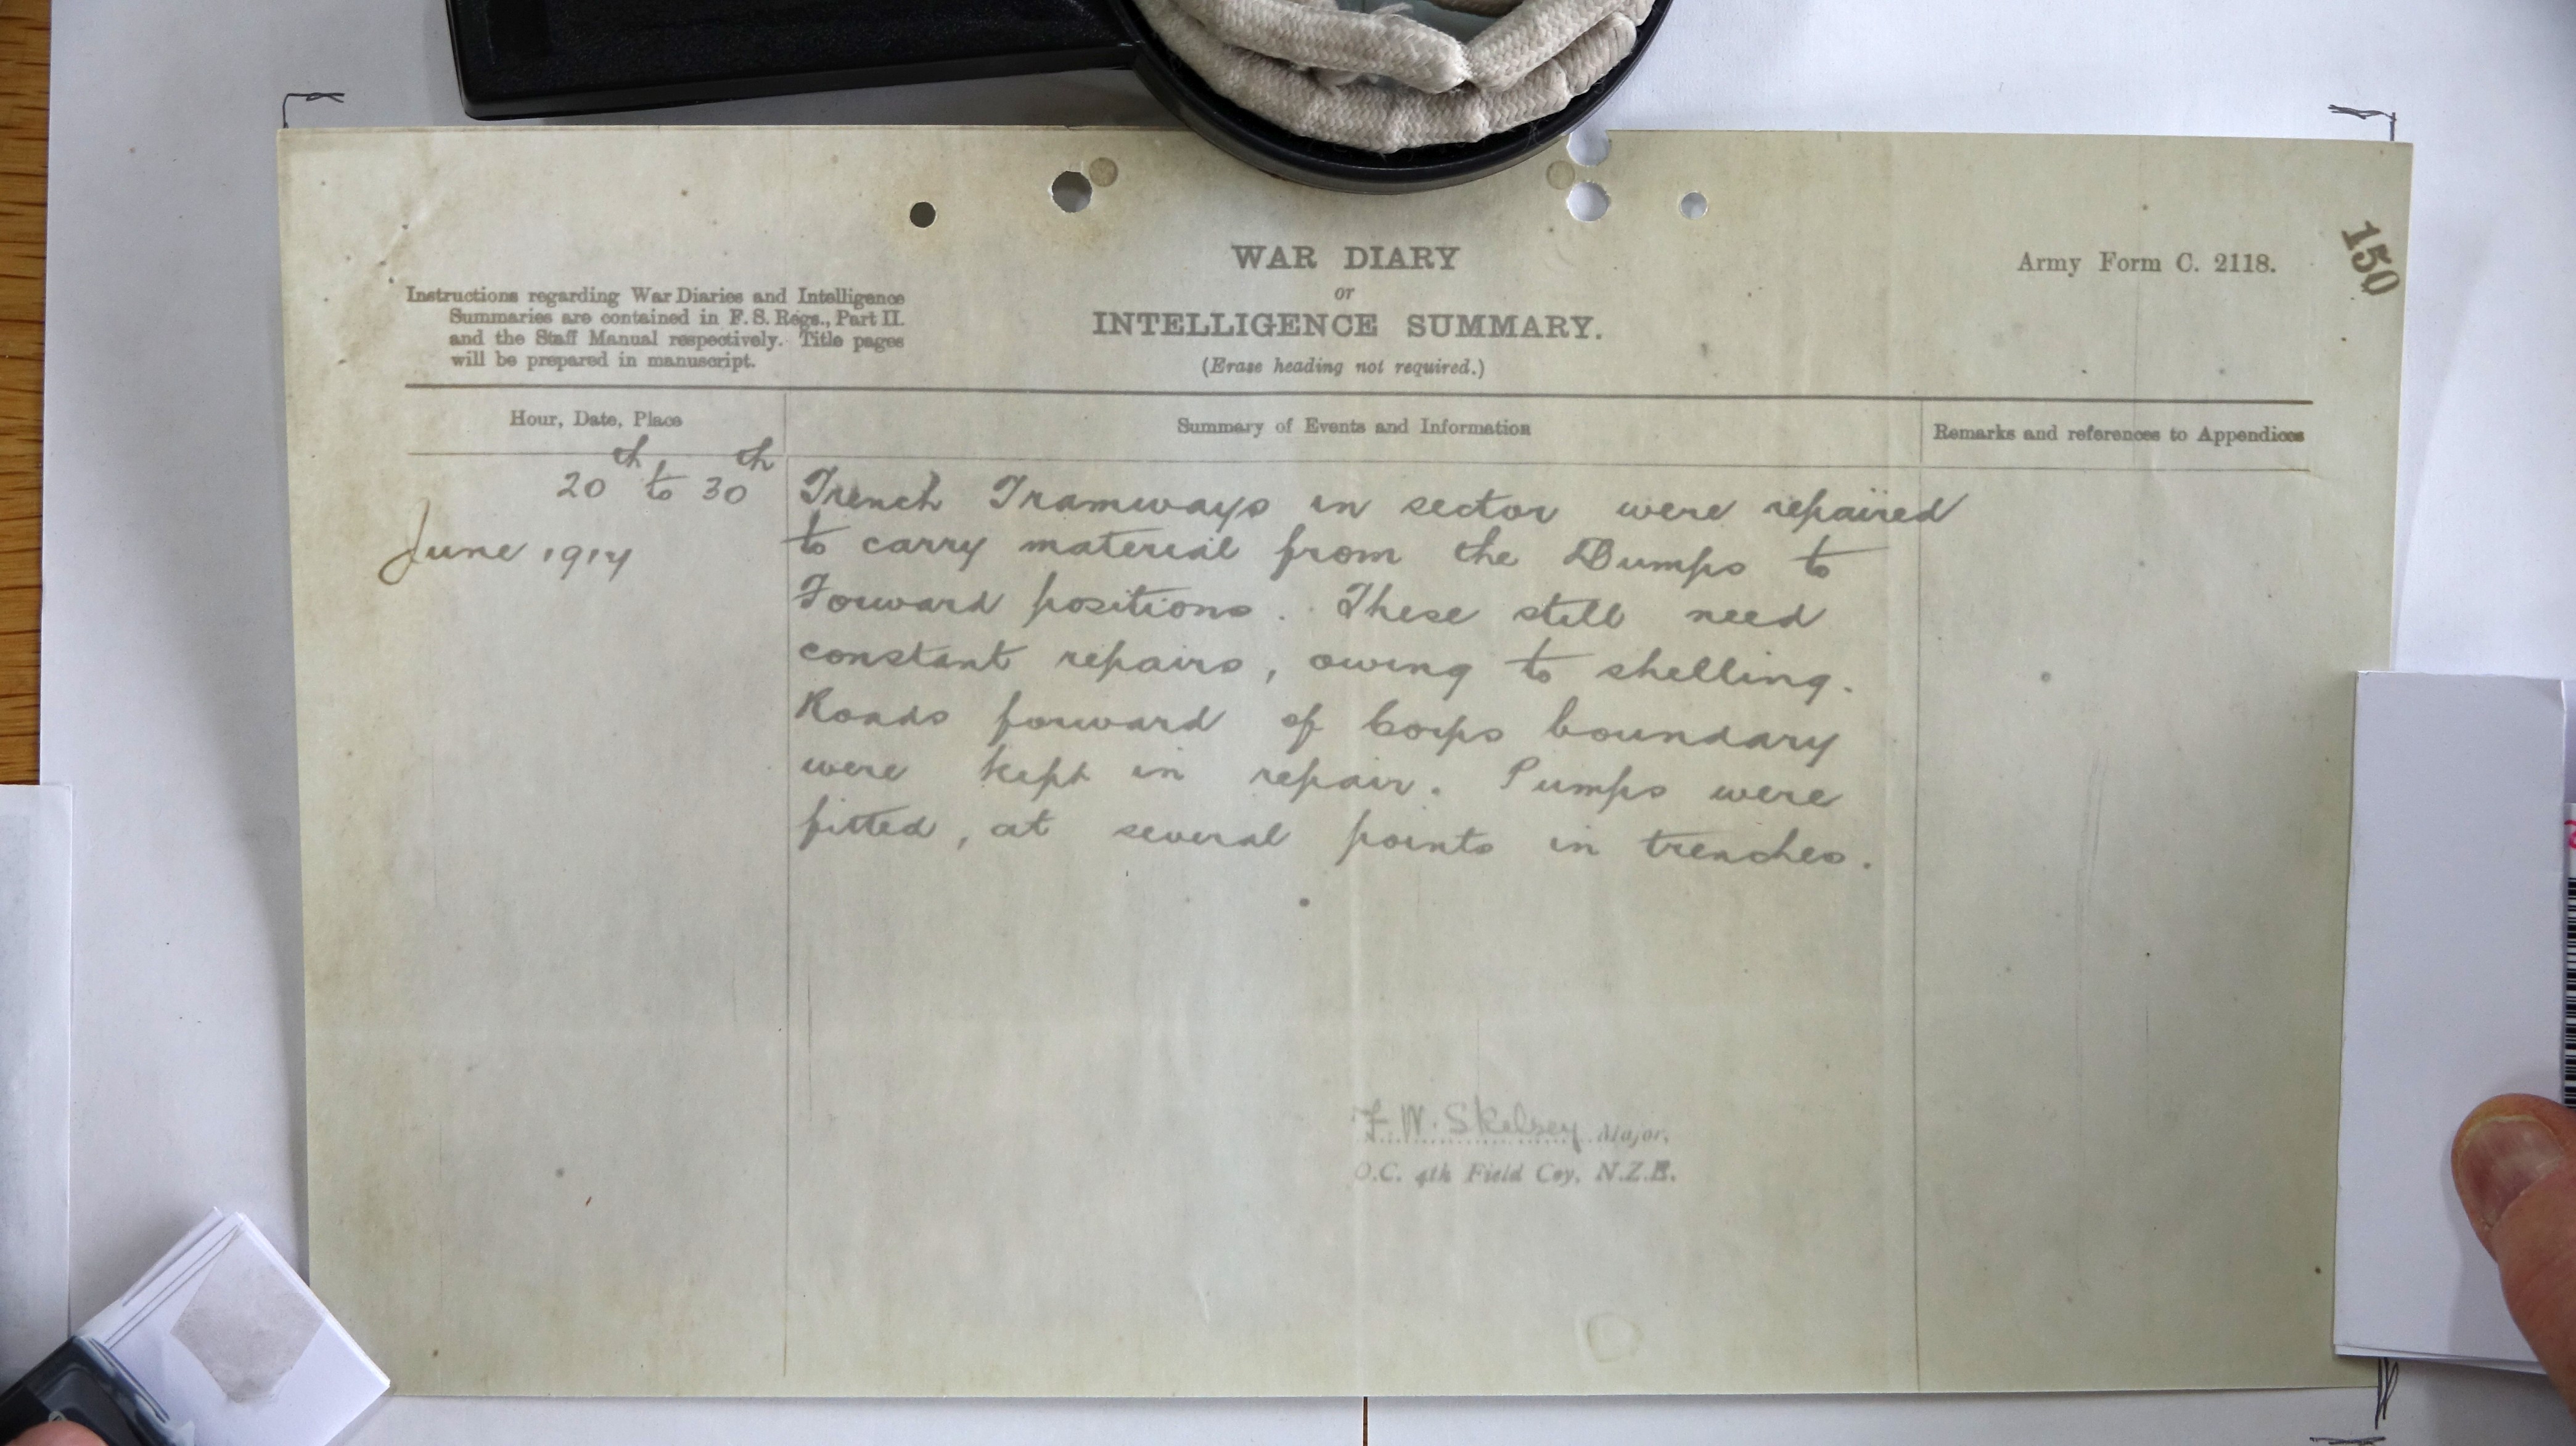 WAR DIARY
or
INTELLIGENCE SUMMARY.
(Erase heading not required.)
Army Form C. 2118.
150
Instructions regarding War Diaries and Intelligence
Summaries are contained in F. S. Regs., Part II.
and the Staff Manual respectively. Title pages
will be prepared in manuscript.
Hour, Date, Place
Summary of Events and Information
Remarks and references to Appendices
20th to 30th
June 1917
Trench Tramways in sector were repaired
to carry material from the Dumps to
Forward positions. These still need
constant repairs, owing to shelling.
Roads forward of Corps boundary
were kept in repair. Pumps were
fitted, at several points in trenches.
F. W. Skelsey Major,
O.C. 4th Field Coy, N.Z.E.